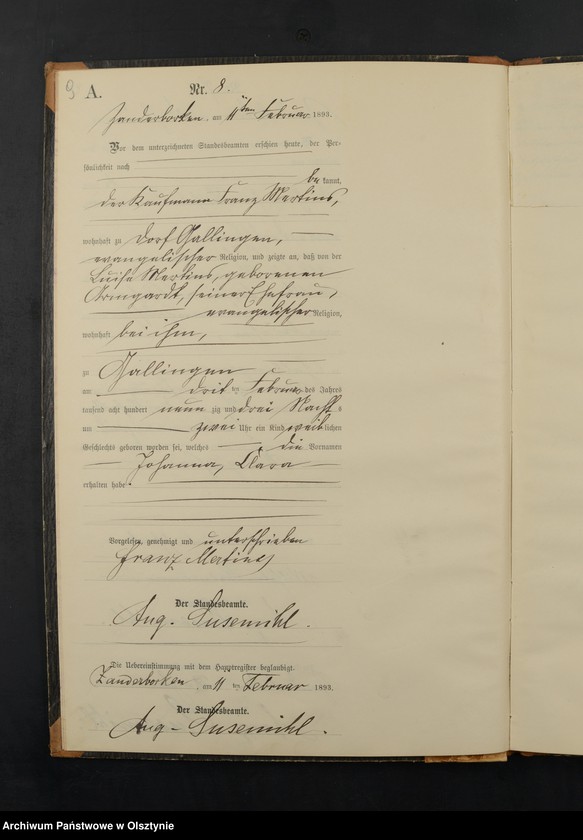 9 A. Nr. 8.
Zanderborken, am 11ten Februar 1893.
Vor dem unterzeichneten Standesbeamten erschien heute, der Per-
sönlichkeit nach
be kannt,
der Kaufmann Franz Mertins,
wohnhaft zu Dorf Gallingen,
evangelischer Religion, und zeigte an, daß von der
Luise Mertins, geborenen
Armgardt, seiner Ehefrau,
evangelischer Religion,
wohnhaft bei ihm,
zu Gallingen
am dritten Februar des Jahres
tausend acht hundert neun zig und drei Nacht s
um zwei Uhr ein Kind weib lichen
Geschlechts geboren worden sei, welches die Vornamen
Johanna, Clara
erhalten habe.
Vorgelesen, genehmigt und unterschrieben
Franz Mertins
Der Standesbeamte.
Aug. Susemihl.
Die Uebereinstimmung mit dem Hauptregister beglaubigt.
Zanderborken, am 11 ten Februar 1893.
Der Standesbeamte.
Aug. Susemihl.
Archiwum Państwowe w Olsztynie